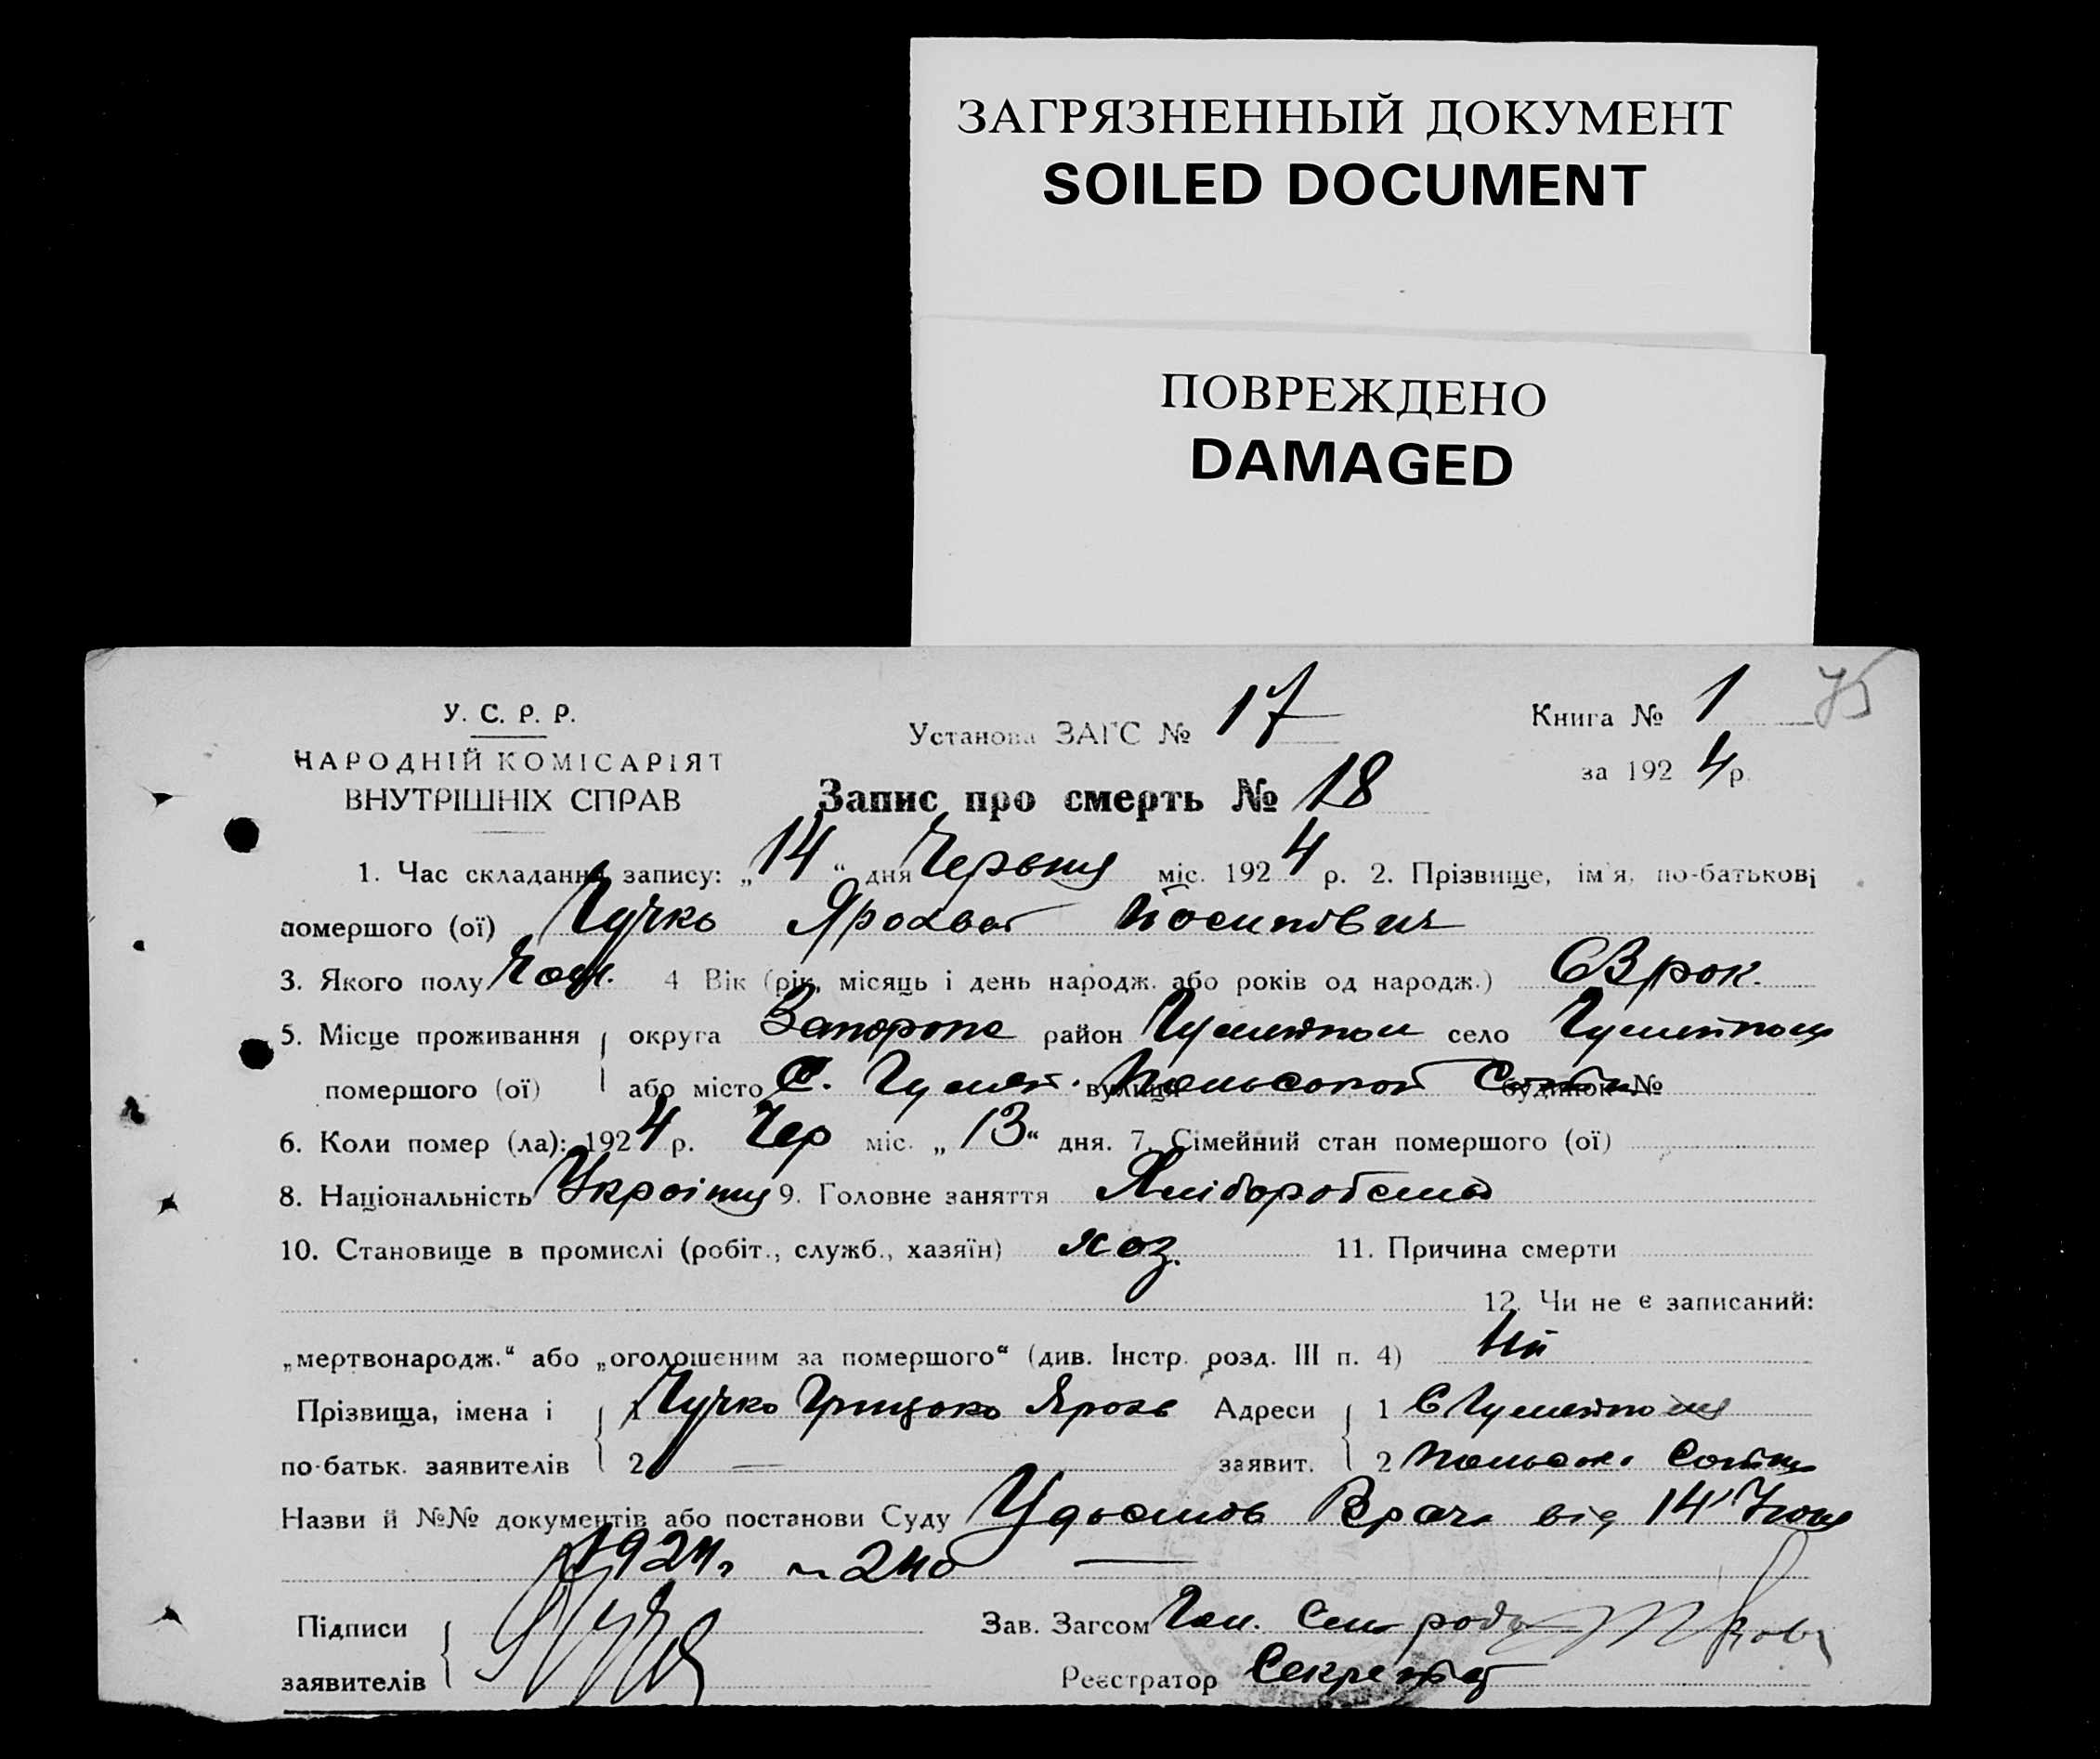 ЗАГРЯЗНЕННЫЙ ДОКУМЕНТ
SOILED DOCUMENT
ПОВРЕЖДЕНО
DAMAGED
У. С. Р. Р.
НАРОДНІЙ КОМІСАРІЯТ
ВНУТРІШНІХ СПРАВ
Установа ЗАГС № 17
Книга № 1 75
за 1924 р.
Запис про смерть № 18
1. Час складання запису: „14“ дня Червня міс. 1924 р. 2. Прізвище, ім'я, по-батькові
помершого (ої) Йосипович
3. Якого полу Чол. 4 Вік (рік, місяць і день народж. або років од народж.) 63 рок.
5. Місце проживання округа район Гуляйполе село Гуляйполе
помершого (ої) або місто С. Гуляй. вулиця будинок №
6. Коли помер (ла): 1924 р. Чер міс. „13“ дня. 7. Сімейний стан помершого (ої)
8. Національність 9. Головне заняття
10. Становище в промислі (робіт., служб., хазяїн) хоз. 11. Причина смерти
12. Чи не є записаний:
„мертвонародж.“ або „оголошеним за помершого“ (див. Інстр. розд. III п. 4) Ні
Прізвища, імена і 1 Грицько Адреси 1 С
по-батьк. заявителів 2 — заявит. 2
Назви й №№ документів або постанови Суду Врач. від 14
1924 240 —
Підписи Зав. Загсом
заявителів Реєстратор Секретар